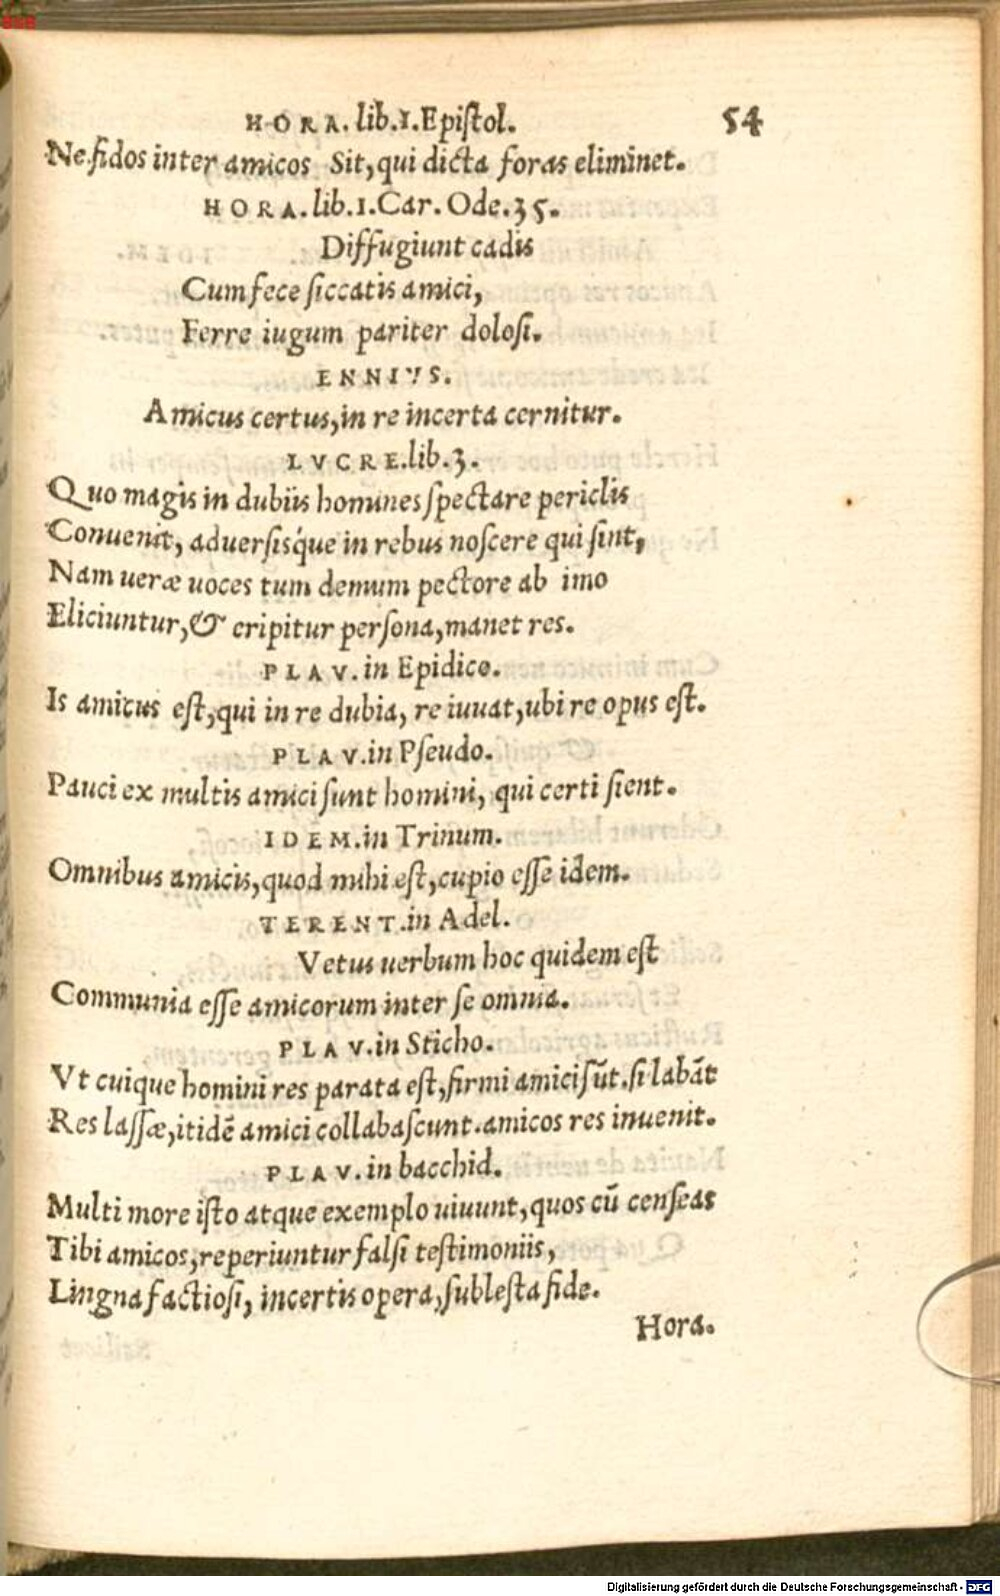 HORA. lib.1.Epistol. 54
Ne fidos inter amicos Sit, qui dicta foras eliminet.
HORA. lib.1.Car. Ode.35.
Diffugiunt cadis
Cum fece siccatis amici,
Ferre iugum pariter dolosi.
ENNIVS.
Amicus certus, in re incerta cernitur.
LVCRE. lib.3.
Quo magis in dubiis homines spectare periclis
Conuenit, aduersisq́ue in rebus noscere qui sint,
Nam ueræ uoces tum demum pectore ab imo
Eliciuntur, & eripitur persona, manet res.
PLAV. in Epidico.
Is amicus est, qui in re dubia, re iuuat, ubi re opus est.
PLAV. in Pseudo.
Pauci ex multis amici sunt homini, qui certi sient.
IDEM. in Trinum.
Omnibus amicis, quod mihi est, cupio esse idem.
TERENT. in Adel.
Vetus uerbum hoc quidem est
Communia esse amicorum inter se omnia.
PLAV. in Sticho.
Vt cuique homini res parata est, firmi amici sũt. si labãt
Res lassæ, itidẽ amici collabascunt. amicos res inuenit.
PLAV. in bacchid.
Multi more isto atque exemplo uiuunt, quos cũ censeas
Tibi amicos, reperiuntur falsi testimoniis,
Lingna factiosi, incertis opera, sublesta fide.
Hora.
Digitalisierung gefördert durch die Deutsche Forschungsgemeinschaft - DFG